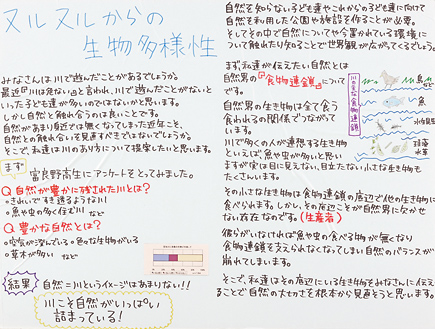 ヌルヌルからの
生物多様性
みなさんは川で遊んだことがあるでしょうか。
最近『川は危ない』と言われ、川で遊んだことがないと
いった子ども達が多いのではないかと思います。
しかし自然と触れ合うのは良いことです。
自然があまり身近では無くなってしまった近年こそ、
自然との触れ合いを見直すべきではないでしょうか。
そこで、私達は川のあり方について提案したいと思います。
まず
富良野高生にアンケートをとってみました。
Q 自然が豊かに残された川とは?
・きれいで透き通るような川
・魚や虫の多く住む川 など
Q 豊かな自然とは?
・空気が澄んでいる・色々な生物がいる
・草木が多い など
結果 自然=川というイメージはあまりない!!
川こそ自然がいっぱい
詰まっている!
自然を知らない子ども達やこれからの子ども達に向けて
自然を利用した公園や施設を作ることが必要。
そしてその中で自然についてや今置かれている環境に
ついて触れたり知ることで世界観が広がってくるでしょう。
まず私達が伝えたい自然とは
自然界の『食物連鎖』について
です。
自然界の生き物は全て食う
食われるの関係でつながって
います。
川で多くの人が連想する生き物
といえば魚や虫が多いと思い
ますが実は目に見えない、目立たない小さな生き物も
たくさんいます。
川の主な食物連鎖
鳥など
魚
水生昆虫
藻類
水草
その小さな生き物は食物連鎖の底辺で他の生き物に
食べられます。しかし、その底辺こそが自然界に欠かせ
ない存在なのです。(生産者)
彼らがいなければ魚や虫の食べる物が無くなり
食物連鎖を支えられなくなってしまい自然のバランスが
崩れてしまいます。
そこで、私達はその底辺にいる生き物をみなさんに伝え
ることで自然の大切さを根本から見直そうと思います。